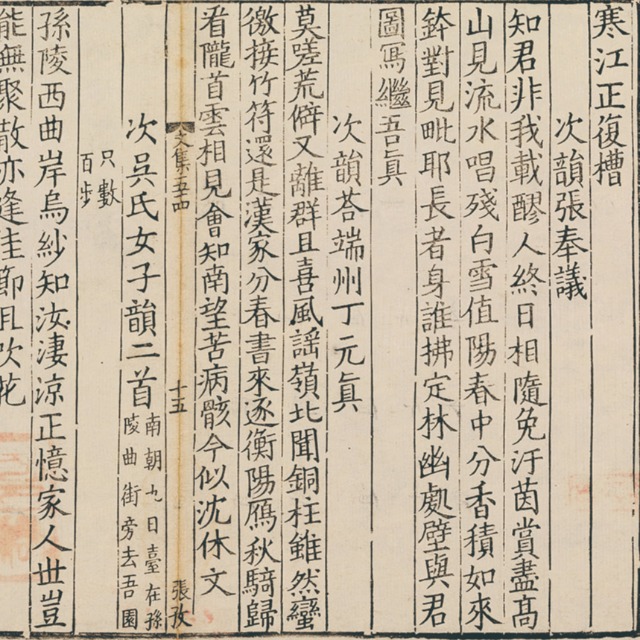 寒江正復槽
次韻張奉議
知君非我載醪人終日相隨免汙茵賞盡髙
山見流水唱殘白雪值陽春中分香積如來
鉢對見毗耶長者身誰拂定林幽處壁與君
圖寫繼吾真
次韻荅端州丁元真
莫嗟荒僻又離群且喜風謡嶺北聞銅柱雖然蠻
徼接竹符還是漢家分春書來逐衡陽鴈秋騎歸
看隴首雲相見會知南望苦病骸今似沈休文
文集五四
十五
張孜
次吳氏女子韻二首
南朝九日臺在孫
陵曲街旁去吾園
只數
百步
孫陵西曲岸烏紗知汝凄涼正憶家人世豈
能無聚散亦逢佳節且吹花